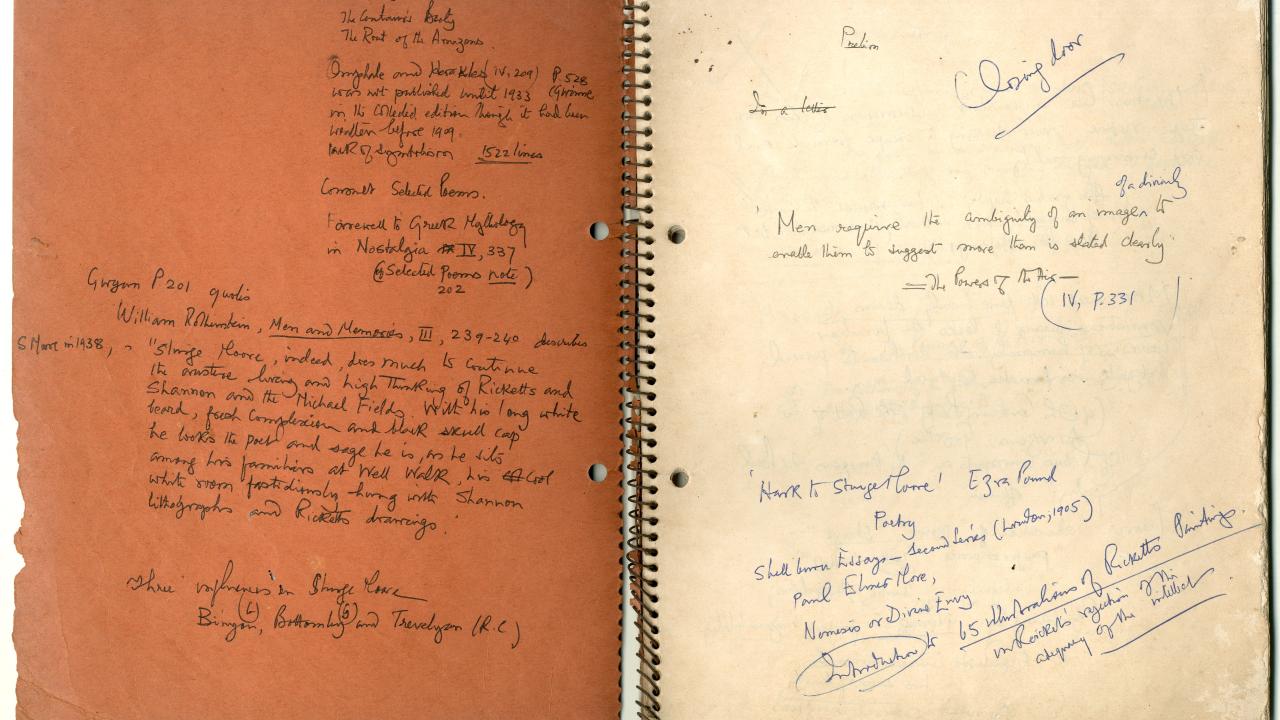 The Centaur's Booty
The Rout of the Amazons.
(Omphale and Herakles IV, 209) P. 528
was not published until 1933 (Gwynne
in the collected edition though it had been
written before 1909.
1522 lines
Selected Poems.
Farewell to Greek Mythology
in Nostalgia IV, 337
(Selected Poems note)
202
P 201 quotes
William Rothenstein, Men and Memories, III, 239-240 describes
S Moore in 1938,
"Sturge Moore, indeed, does much to continue
the austere living and high thinking of Ricketts and
Shannon and the Michael Fields. With his long white
beard, fresh complexion and black skull cap
he looks the poet and sage he is, as he sits
among his familiars at Well Walk, his cool
white room fastidiously hung with Shannon
lithographs and Ricketts drawings.'
Three influences on Sturge Moore
(L) (G)
Binyon, Bottomley and Trevelyan (R.C)
Closing door
In a letter
of a divinity
'Men require the ambiguity of an image to
enable them to suggest more than is stated clearly'
The Powers of the Air
(IV, P.331)
'Hark to Sturge Moore' Ezra Pound
Poetry
Shelburne Essays – Second Series (London, 1905)
Paul Elmer More,
Nemesis or Divine Envy
Introduction to 65 illustrations of Ricketts Paintings.
on Ricketts' rejection of the
adequacy of the intellect